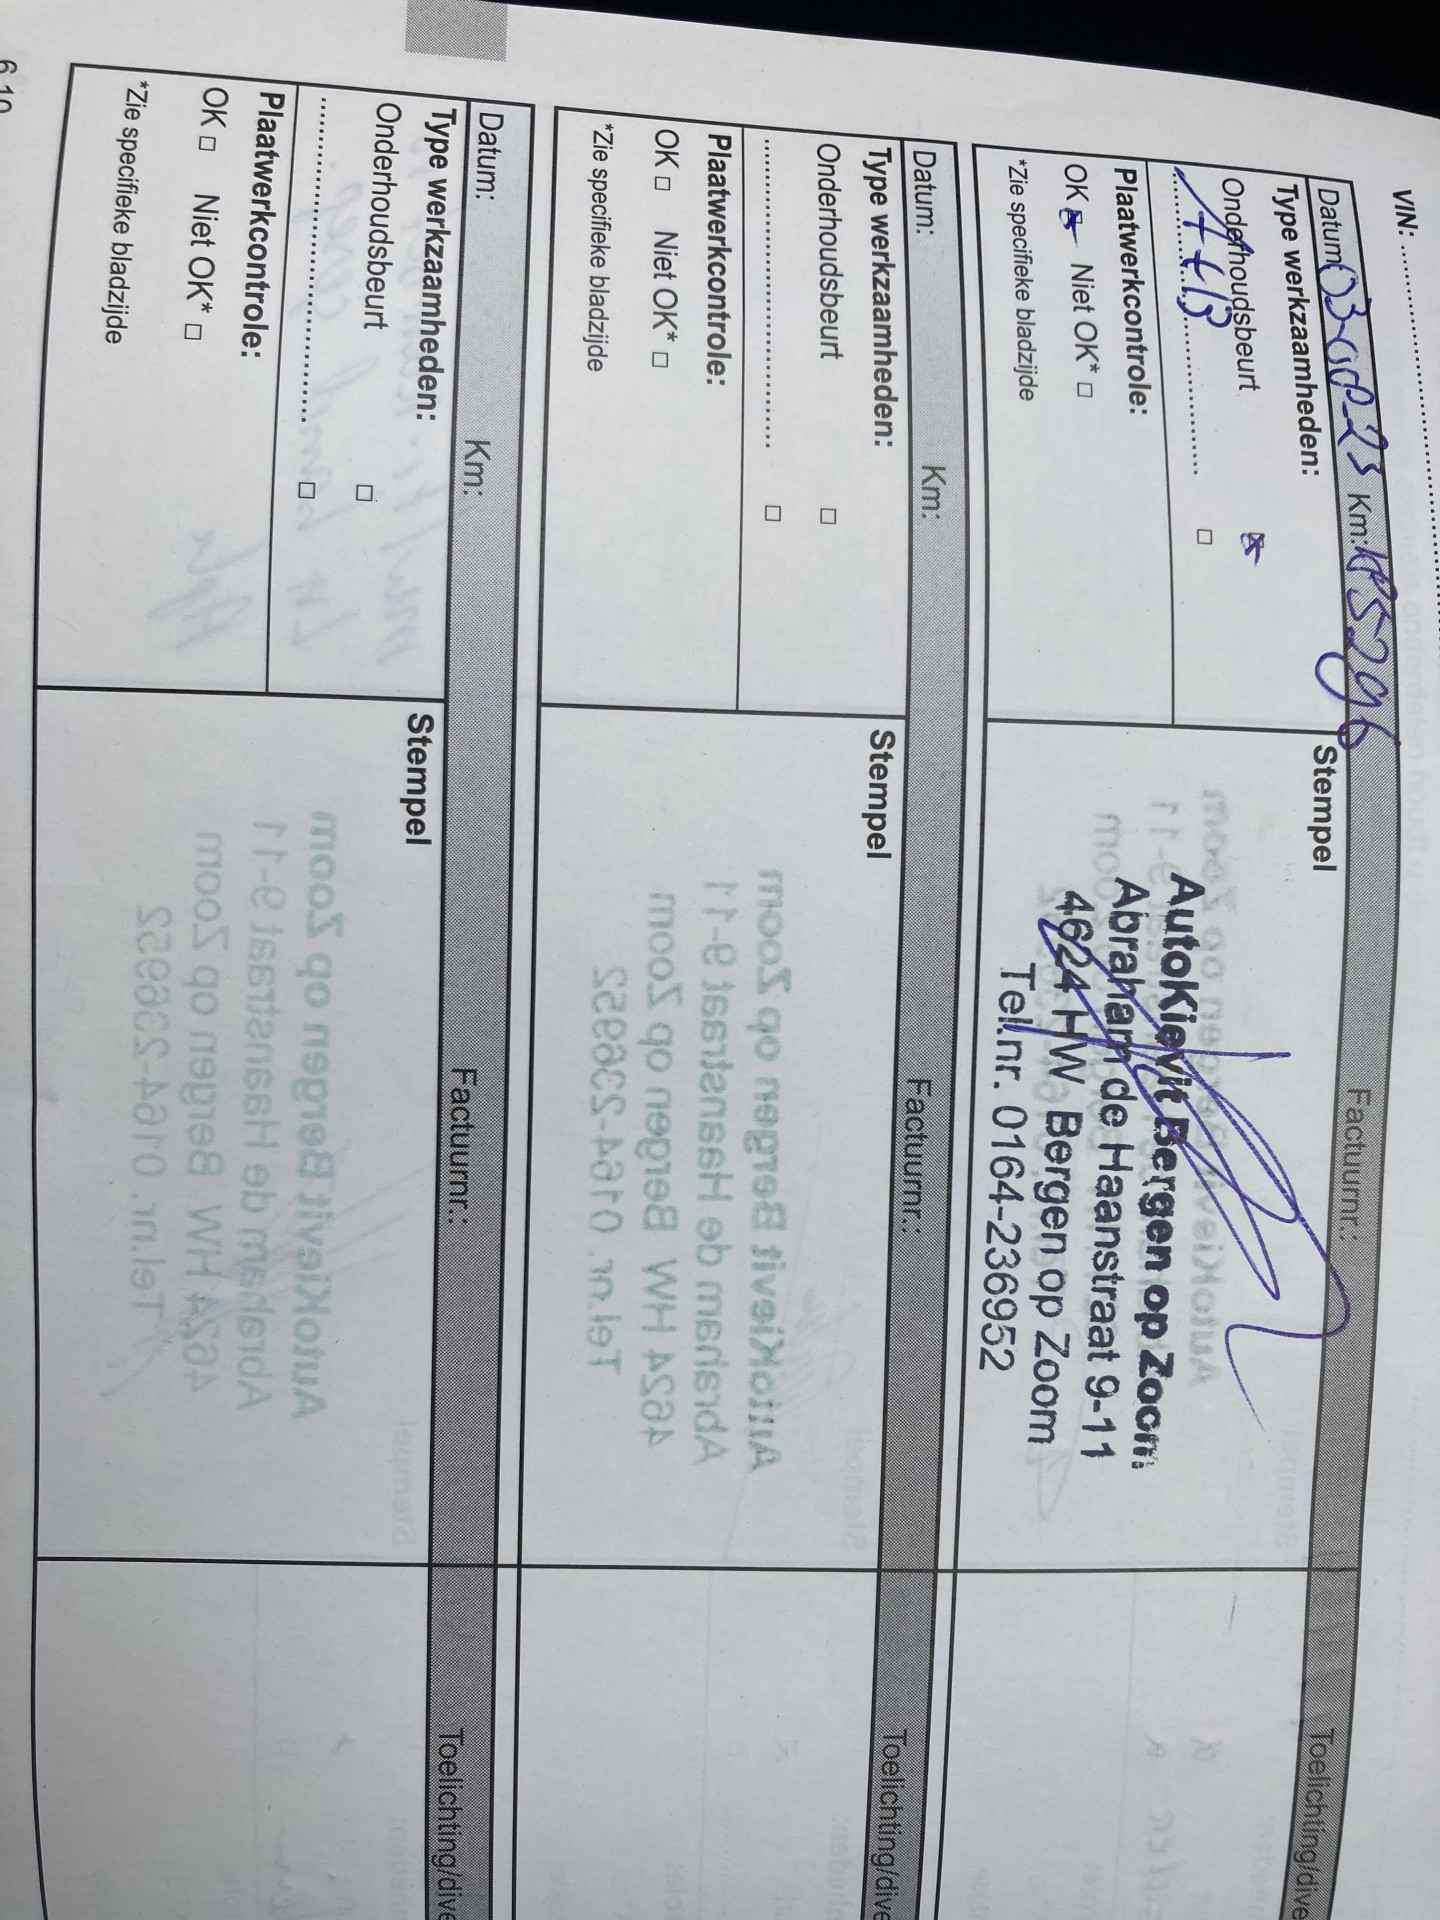 VIN:
Datum: 03- -23 Km: Factuurnr.: Toelichting/dive
Type werkzaamheden: Stempel
Onderhoudsbeurt
AutoKievit Bergen op Zoom
Abraham de Haanstraat 9-11
4624 HW Bergen op Zoom
Tel.nr. 0164-236952
Plaatwerkcontrole:
OK Niet OK*
*Zie specifieke bladzijde
Datum: Km: Factuurnr.: Toelichting/dive
Type werkzaamheden: Stempel
Onderhoudsbeurt
Plaatwerkcontrole:
OK Niet OK*
*Zie specifieke bladzijde
Datum: Km: Factuurnr.: Toelichting/dive
Type werkzaamheden: Stempel
Onderhoudsbeurt
Plaatwerkcontrole:
OK Niet OK*
*Zie specifieke bladzijde
6.10